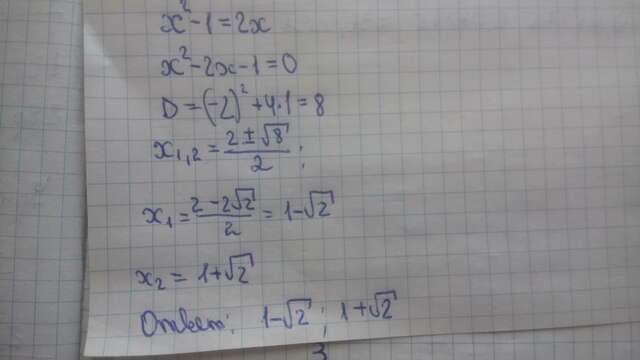 x²-1=2x
x²-2x-1=0
D=(-2)²+4·1=8
x₁,₂=(2±√8)/2;
x₁=(2-2√2)/2=1-√2
x₂=1+√2
Ответ: 1-√2; 1+√2